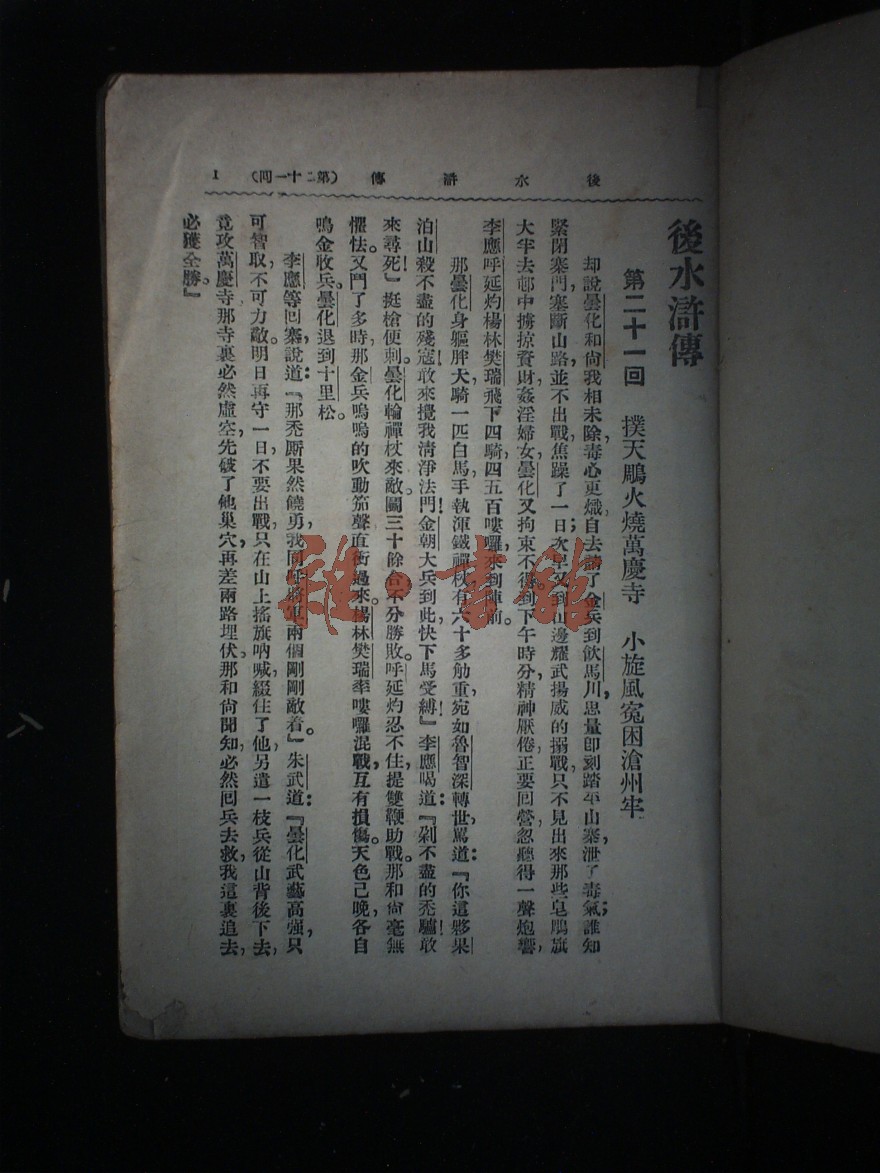 後水滸傳（第二十一回） 1
後水滸傳
第二十一回 撲天鵰火燒萬慶寺 小旋風寃困滄州牢
却說曇化和尙我相未除毒心更熾自去請了金兵到飲馬川，思量卽刻踏平山寨，泄了毒氣；誰知
緊閉寨門，塞斷山路，並不出戰，焦躁了一日；次早又到山邊耀武揚威的搦戰，只不見出來，那些皂鵰旗
大半去邨中擄掠資財，姦淫婦女，曇化又拘束不得。到下午時分，精神厭倦，正要回營，忽聽得一聲炮響，
李應呼延灼楊林樊瑞飛下四騎，四五百嘍囉，來到陣前。
那曇化身軀胖大，騎一匹白馬，手執渾鐵禪杖，有六十多觔重，宛如魯智深轉世，罵道：『你這夥梁
泊山殺不盡的殘寇，敢來攪我淸淨法門！金朝大兵到此，快下馬受縛！』李應喝道：『剁不盡的禿驢！敢
來尋死！』挺槍便刺。曇化輪禪杖來敵。鬭三十餘合，不分勝敗。呼延灼忍不住，提雙鞭助戰。那和尙毫無
懼怯。又鬥了多時，那金兵嗚嗚的吹動笳聲，直衝過來。楊林樊瑞率嘍囉混戰，互有損傷。天色已晚，各自
鳴金收兵。曇化退到十里松。
李應等回寨，說道：『那禿厮果然饒勇，我同呼將軍兩個剛剛敵着。』朱武道：『曇化武藝高强，只
可智取，不可力敵。明日再守一日，不要出戰，只在山上搖旗吶喊，綴住了他，另遣一枝兵從山背後下去，
竟攻萬慶寺。那寺裏必然虛空，先破了他巢穴，再差兩路埋伏，那和尙聞知，必然回兵去救，我這裏追去，
必獲全勝。』
雜·書館